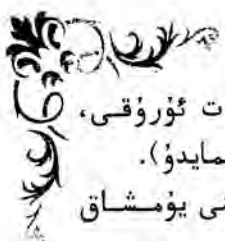 ت ئۇرۇقى،
مايدۇ).
نى يۇمشاق